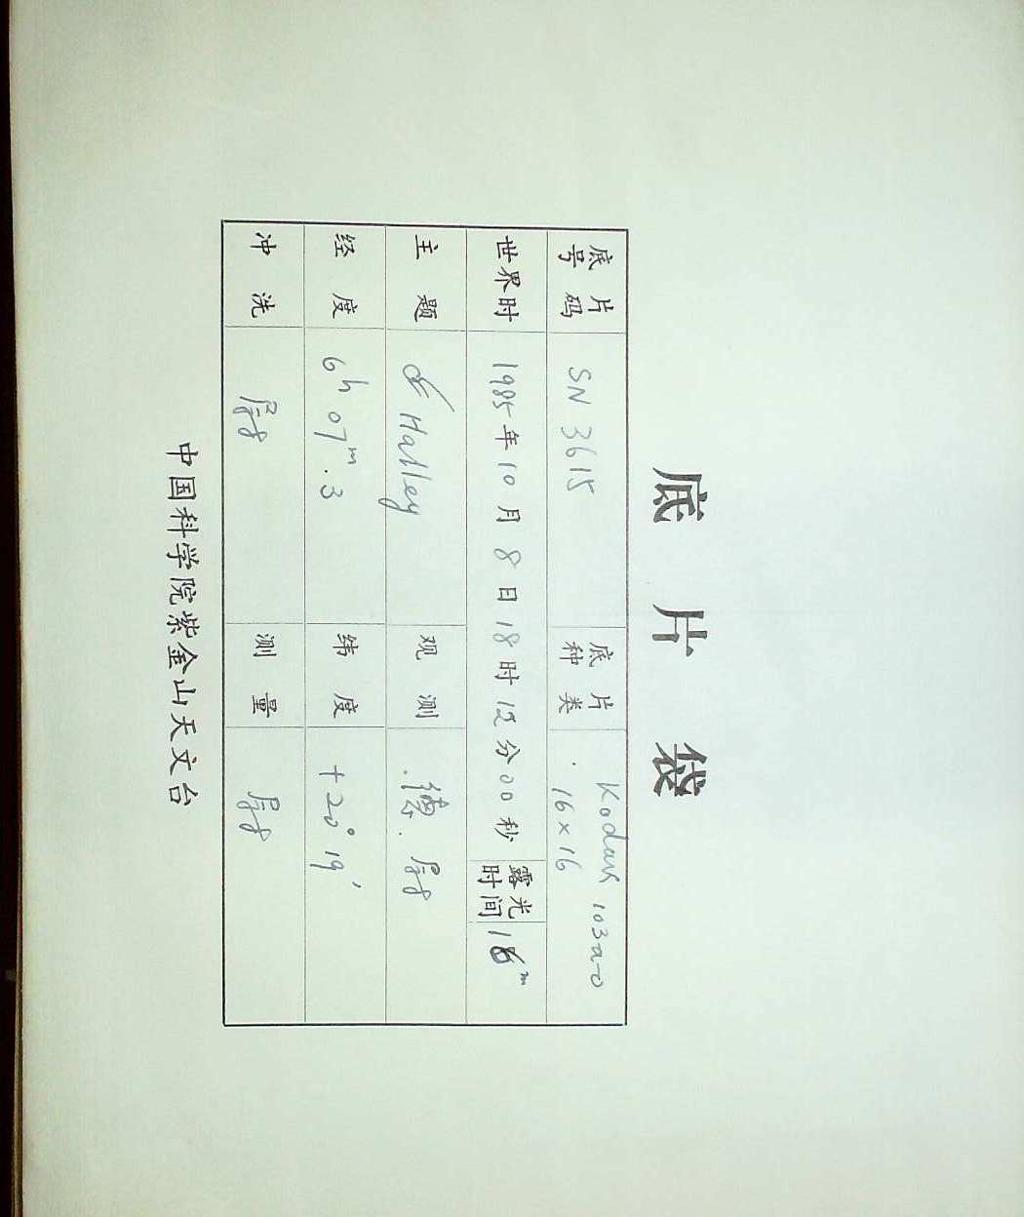 底片袋
底片号码 SN 3615 底片种类 Kodak 103a-O 16×16
世界时 1985年10月8日18时12分00秒 露光时间 16m
主题 Halley 观测 德.
经度 6h 07m.3 纬度 +20° 19′
冲洗 测量
中国科学院紫金山天文台